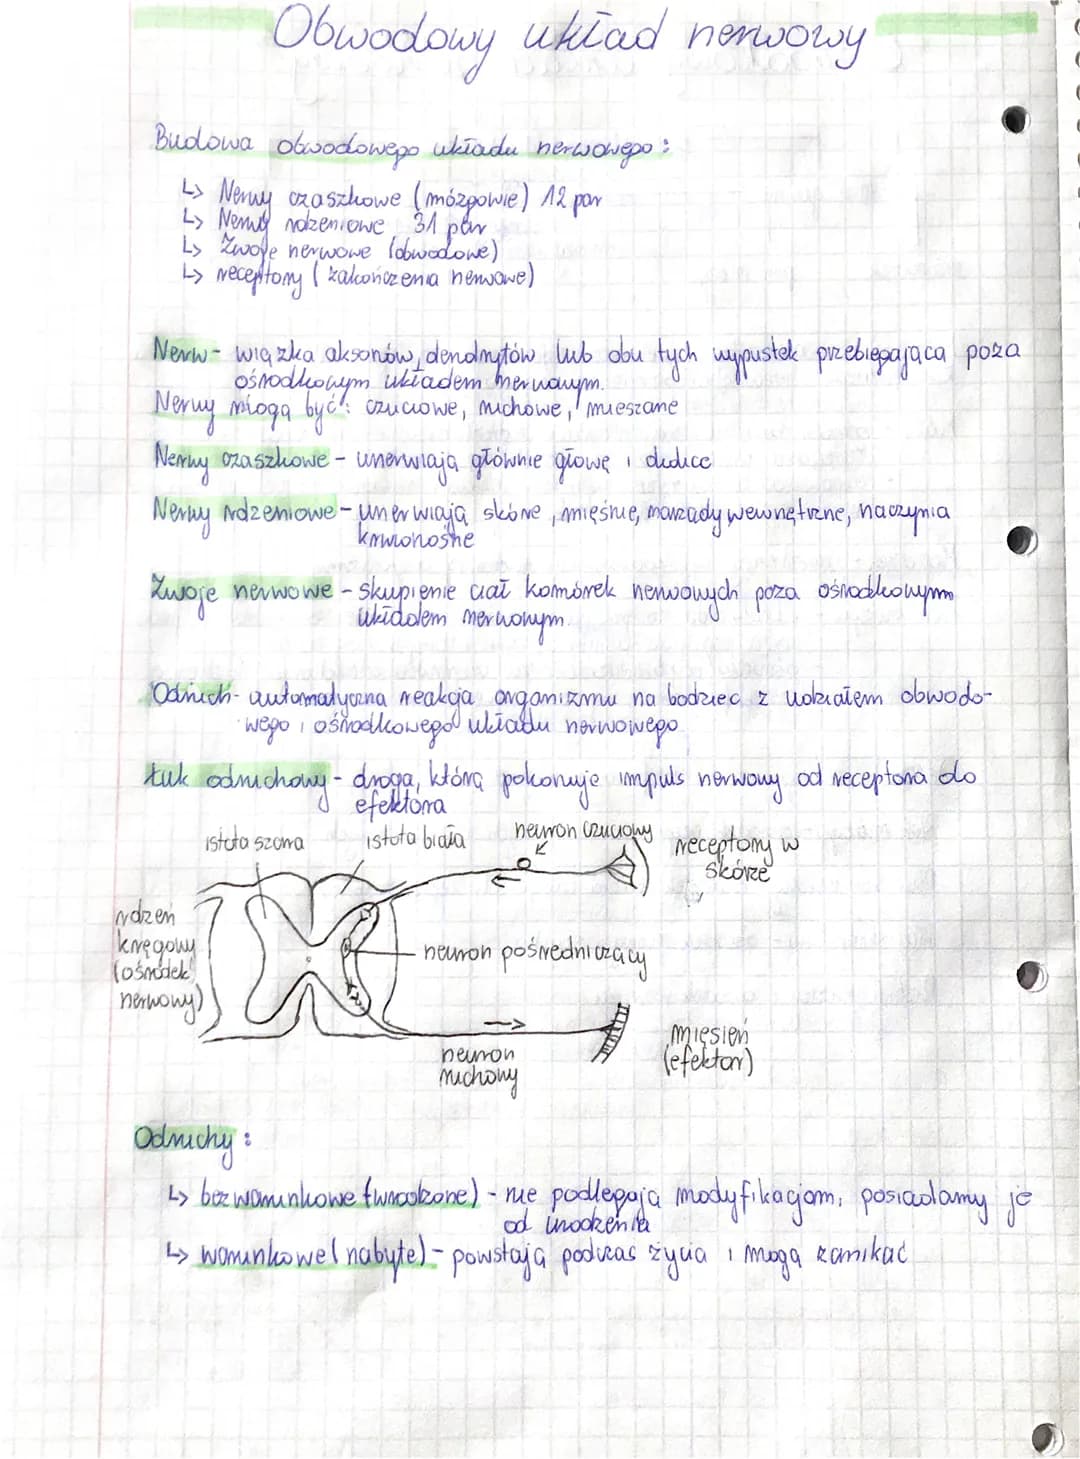 Obwodowy układ nerwowy
Budowa obwodowego układu nerwowego:
↳ Nerwy czaszkowe (mózgowie) 12 par
↳ Nerwy rdzeniowe 31 par
↳ Zwoje nerwowe (obwodowe)
↳ receptory (zakończenia nerwowe)
Nerw - wiązka aksonów, dendrytów lub obu tych wypustek przebiegająca poza
ośrodkowym układem nerwowym.
Nerwy mogą być: czuciowe, ruchowe, mieszane
Nerwy czaszkowe - unerwiają głównie głowę i
Nerwy rdzeniowe - unerwiają skórę, mięśnie, narządy wewnętrzne, naczynia
krwionośne
Zwoje nerwowe - skupienie ciał komórek nerwowych poza ośrodkowym
układem nerwowym.
Odruch - automatyczna reakcja organizmu na bodziec z udziałem obwodo-
wego i ośrodkowego układu nerwowego
Łuk odruchowy - droga, którą pokonuje impuls nerwowy od receptora do
efektora
istota szara istota biała neuron czuciowy receptory w
skórze
rdzeń
kręgowy
(ośrodek
nerwowy)
neuron pośredniczący
neuron
ruchowy
mięsień
(efektor)
Odruchy:
↳ bezwarunkowe (wrodzone) - nie podlegają modyfikacjom, posiadamy je
od urodzenia
↳ warunkowe (nabyte) - powstają podczas życia i mogą zanikać